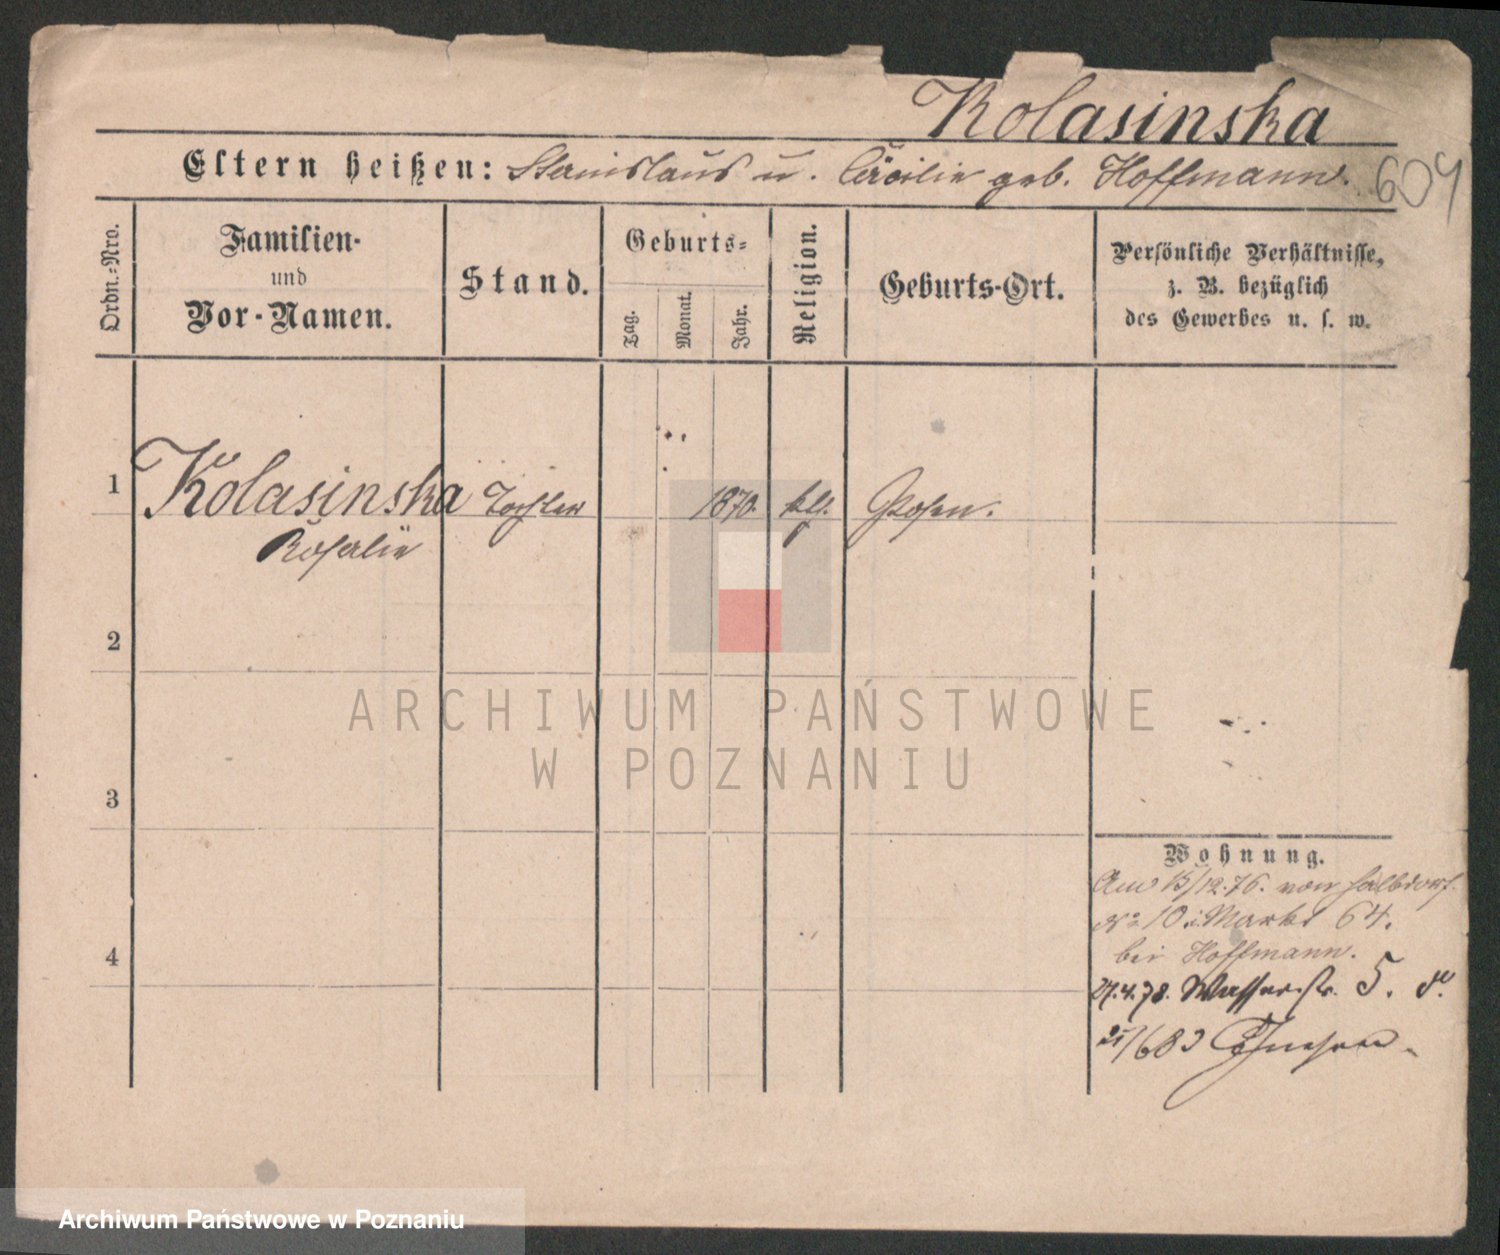 Kolasinska
Eltern heißen: Stanislaus u. Cäcilie geb. Hoffmann.
604
Ordn.=Nro.
Familien-
und
Vor-Namen.
Stand.
Geburts=
Tag.
Monat.
Jahr.
Religion.
Geburts-Ort.
Persönliche Verhältnisse,
z. B. bezüglich
des Gewerbes u. s. w.
1 Kolasinska Tochter 1870. kth. Posen.
Rosalie
2
3
4
Wohnung.
Am 15/12.76. von Halbdorf.
No 10. Markt 64.
bei Hoffmann.
27.4.78. Wasserstr. 5.
21/6 83 Gnesen
ARCHIWUM PAŃSTWOWE
W POZNANIU
Archiwum Państwowe w Poznaniu